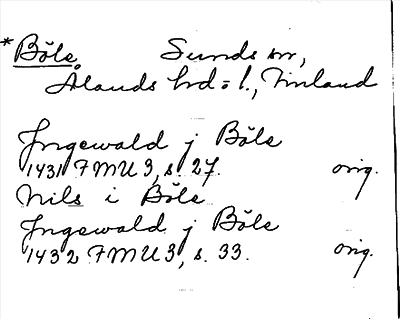 *Böle, Sunds sn,
Ålands hd=l., Finland
Jngewald j Böle
1431 FMU 3, s. 27. orig.
Nils i Böle
Jngewald j Böle
1432 FMU 3, s. 33. orig.